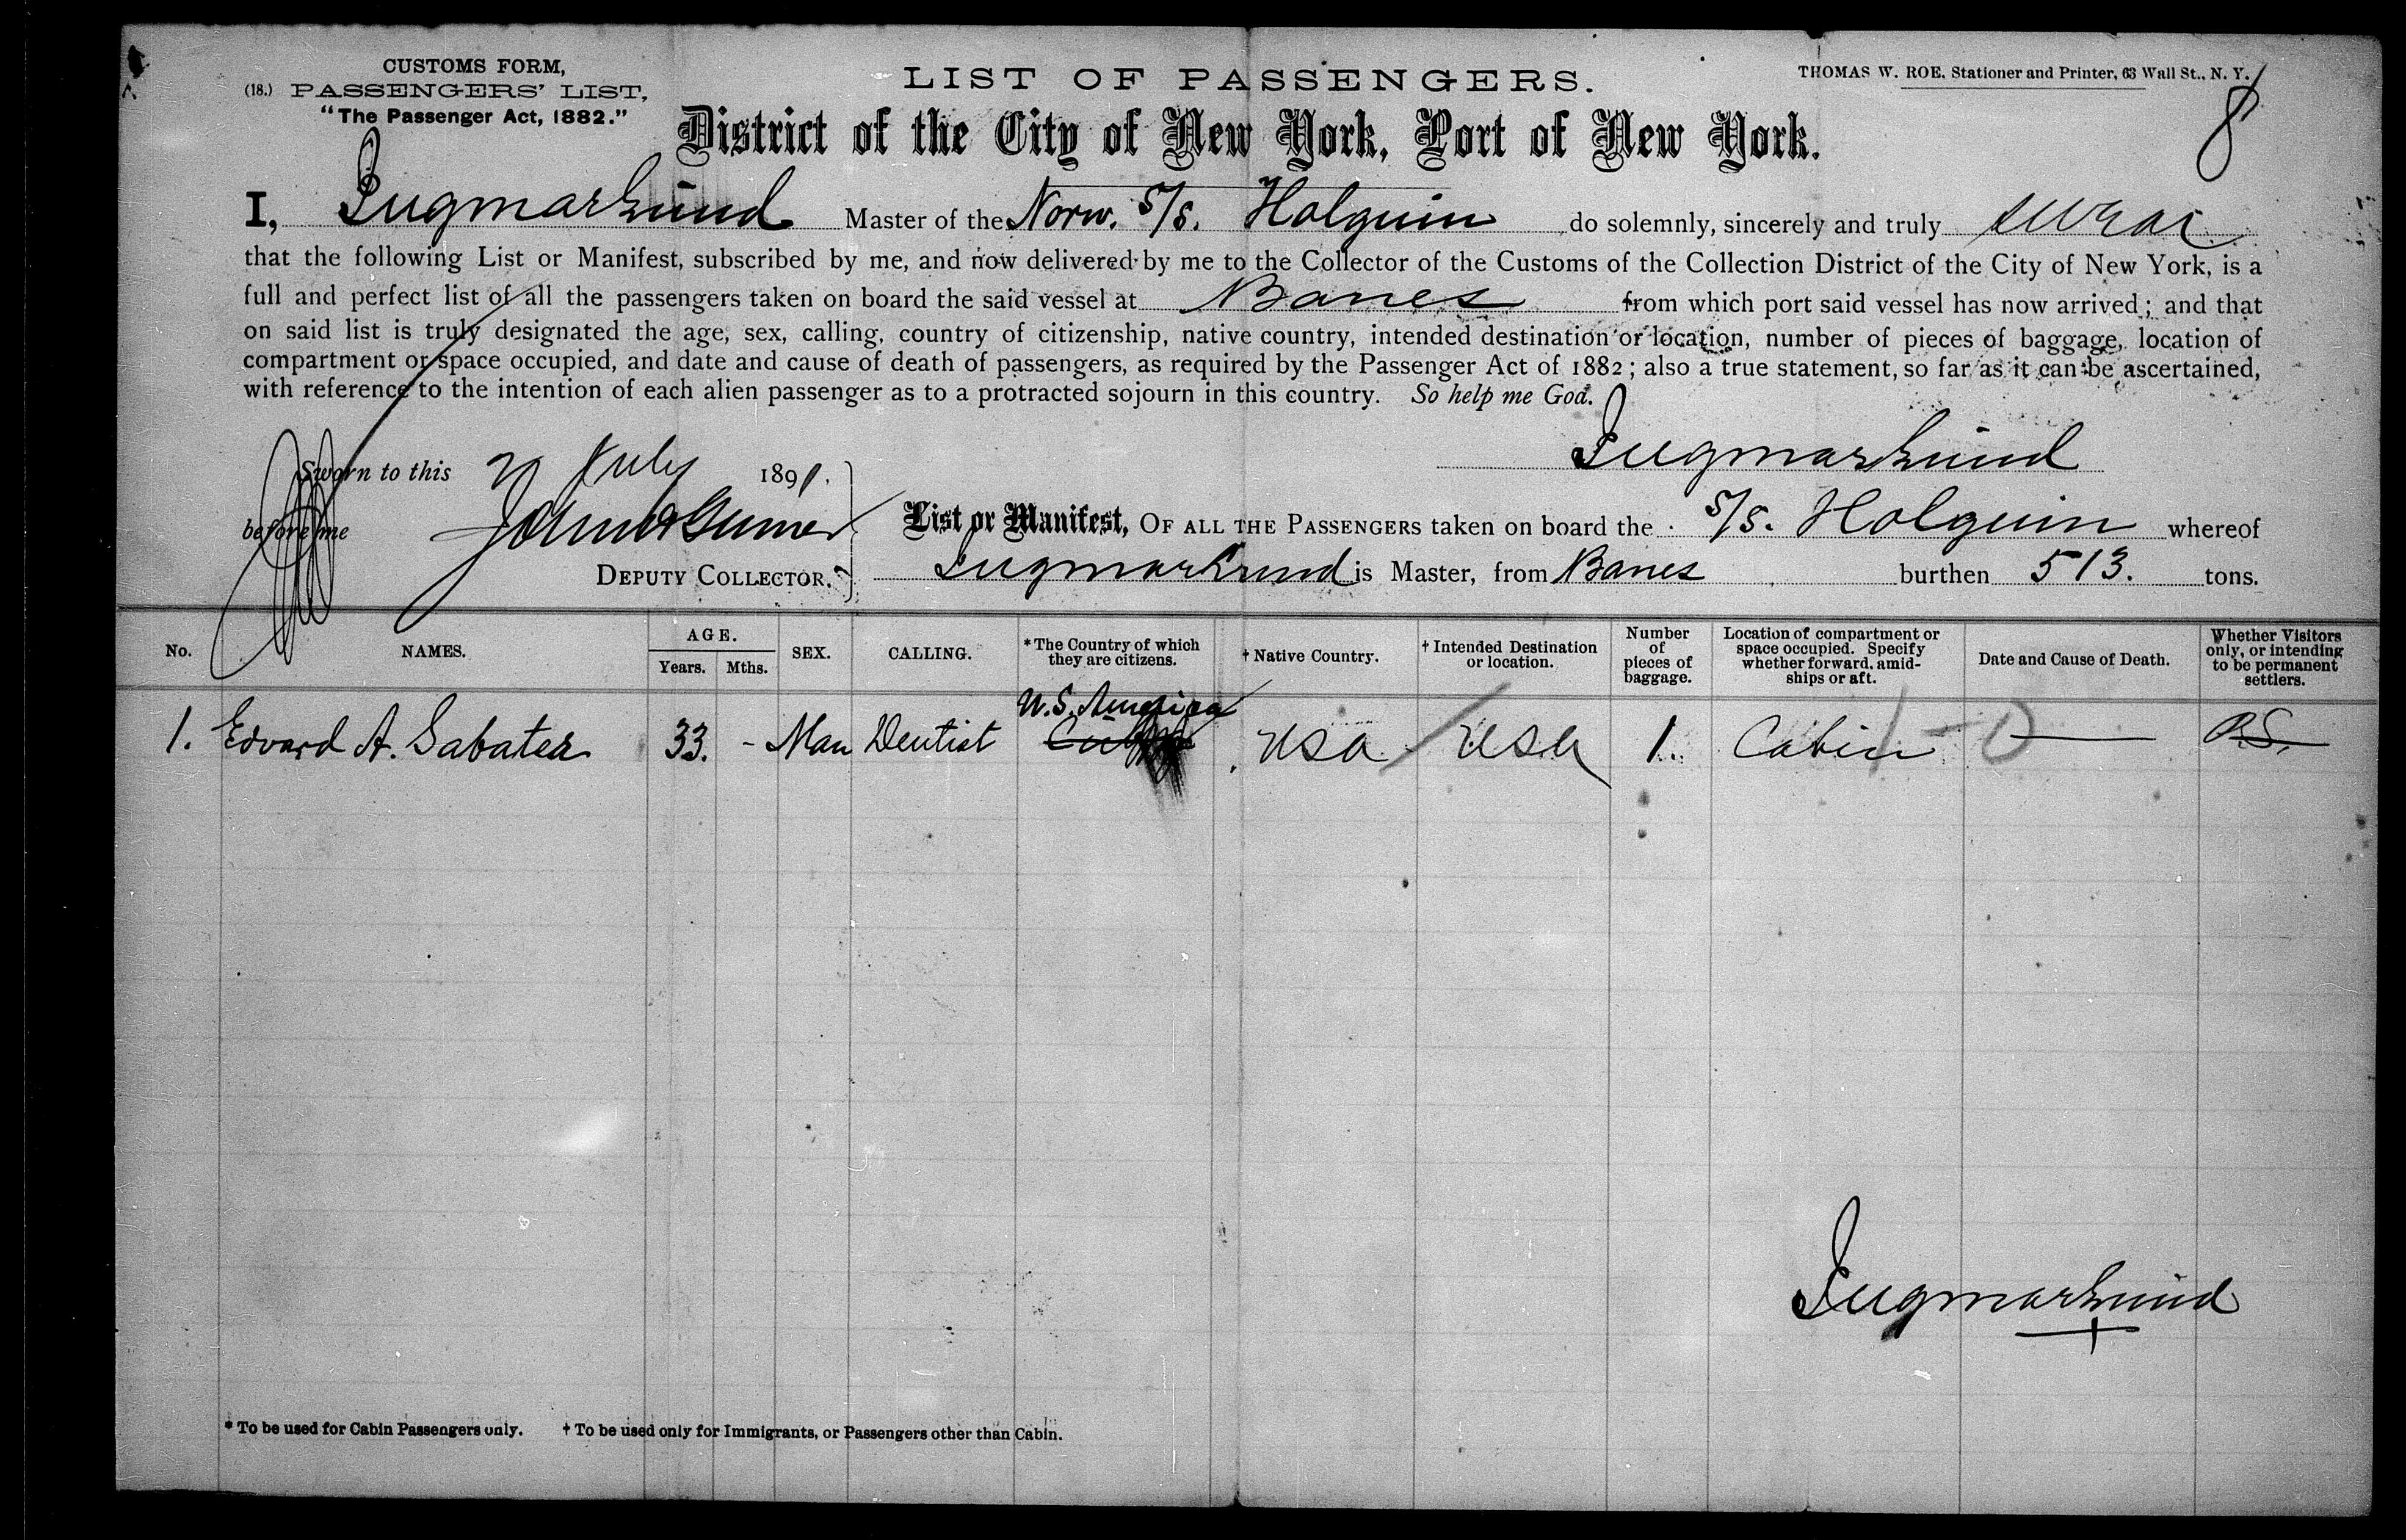 CUSTOMS FORM,
(18.) PASSENGERS' LIST,
"The Passenger Act, 1882."
LIST OF PASSENGERS.
THOMAS W. ROE, Stationer and Printer, 63 Wall St., N. Y.
8
District of the City of New York, Port of New York.
I, Master of the Norw. S/S. Holguin do solemnly, sincerely and truly swear
that the following List or Manifest, subscribed by me, and now delivered by me to the Collector of the Customs of the Collection District of the City of New York, is a
full and perfect list of all the passengers taken on board the said vessel at Banes from which port said vessel has now arrived; and that
on said list is truly designated the age, sex, calling, country of citizenship, native country, intended destination or location, number of pieces of baggage, location of
compartment or space occupied, and date and cause of death of passengers, as required by the Passenger Act of 1882; also a true statement, so far as it can be ascertained,
with reference to the intention of each alien passenger as to a protracted sojourn in this country. So help me God.
Sworn to this July 1891.
before me
DEPUTY COLLECTOR.
List or Manifest, OF ALL THE PASSENGERS taken on board the S/S. Holguin whereof
is Master, from Banes burthen 513. tons.
No. NAMES. AGE. Years. Mths. SEX. CALLING. *The Country of which they are citizens. †Native Country. †Intended Destination or location. Number of pieces of baggage. Location of compartment or space occupied. Specify whether forward, amidships or aft. Date and Cause of Death. Whether Visitors only, or intending to be permanent settlers.
U.S. America
1. Edvard A. Sabater 33. - Man Dentist Cuba USA USA 1. Cabin P.S.
* To be used for Cabin Passengers only. † To be used only for Immigrants, or Passengers other than Cabin.